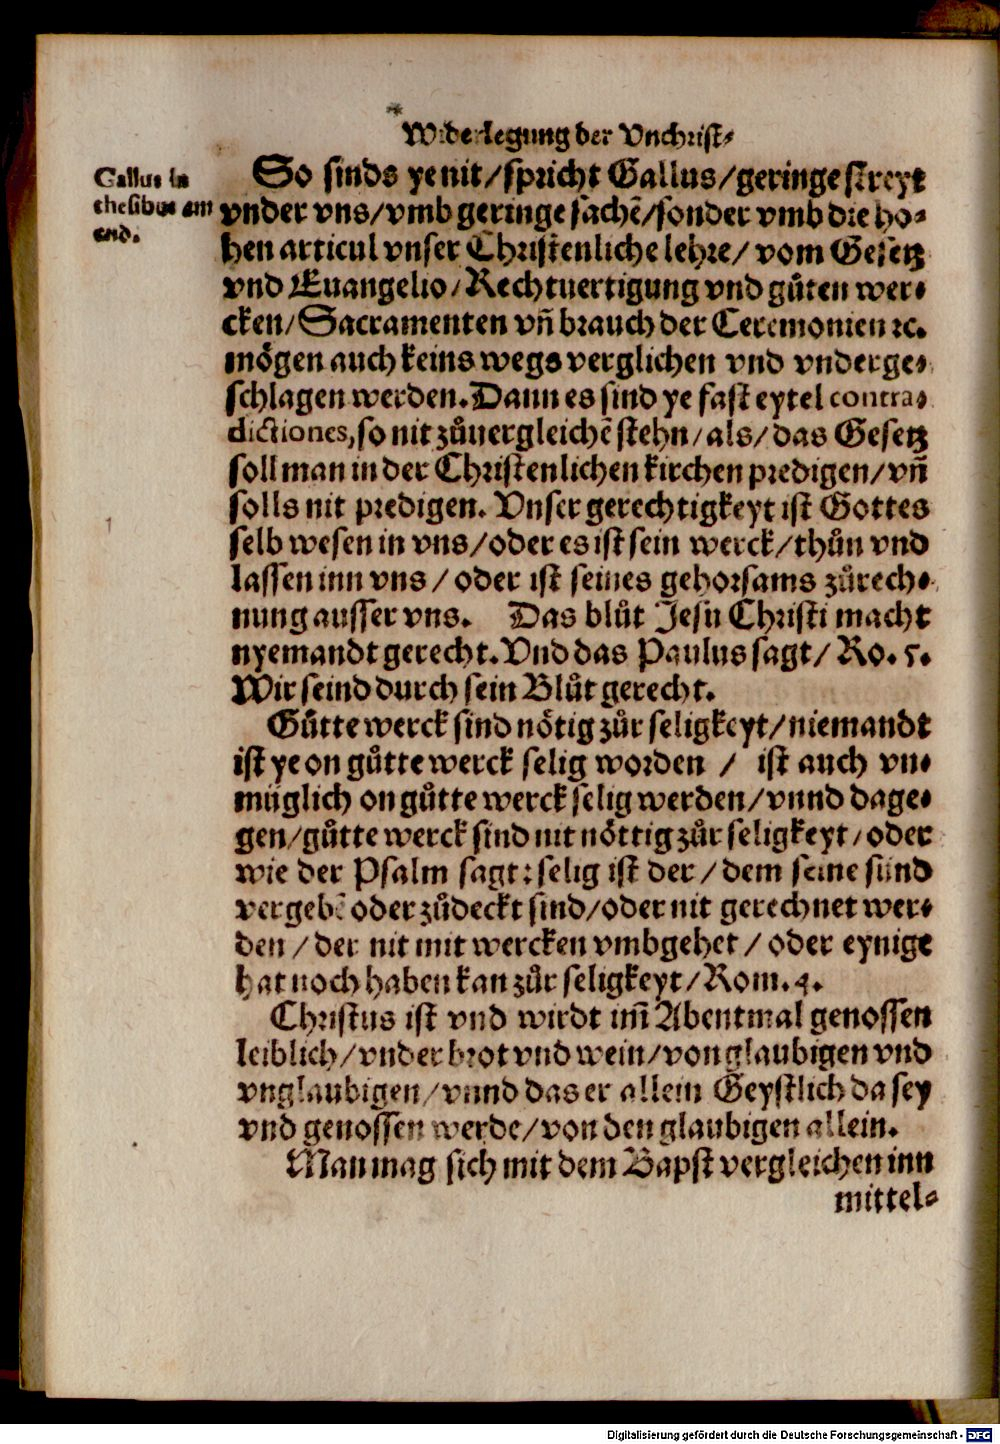 Widerlegung der Vnchrist⸗
Gallus in
thesibus am
end.
So sinds ye nit/spricht Gallus/geringe streyt
vnder vns/vmb geringe sachẽ/sonder vmb die ho⸗
hen articul vnser Christenliche lehre/ vom Gesetz
vnd Euangelio/Rechtuertigung vnd gůten wer⸗
cken/Sacramenten vñ brauch der Ceremonien ꝛc.
mögen auch keins wegs verglichen vnd vnderge⸗
schlagen werden. Dann es sind ye fast eytel contra⸗
dictiones, so nit zůuergleichẽ stehn/als/das Gesetz
soll man in der Christenlichen kirchen predigen/vñ
solls nit predigen. Vnser gerechtigkeyt ist Gottes
selb wesen in vns/oder es ist sein werck/thůn vnd
lassen inn vns/oder ist seines gehorsams zůrech⸗
nung ausser vns. Das blůt Jesu Christi macht
nyemandt gerecht. Vnd das Paulus sagt/ Ro. 5.
Wir seind durch sein Blůt gerecht.
Gůtte werck sind nötig zůr seligkeyt/niemandt
ist ye on gůtte werck selig worden / ist auch vn⸗
müglich on gůtte werck selig werden/vnnd dage⸗
gen/gůtte werck sind nit nöttig zůr seligkeyt/oder
wie der Psalm sagt: selig ist der/dem seine sünd
vergebẽ oder zůdeckt sind/oder nit gerechnet wer⸗
den/der nit mit wercken vmbgehet/oder eynige
hat noch haben kan zůr seligkeyt/Rom. 4.
Christus ist vnd wirdt im̃ Abentmal genossen
leiblich/vnder brot vnd wein/von glaubigen vnd
vnglaubigen/vnnd das er allein Geystlich da sey
vnd genossen werde/von den glaubigen allein.
Man mag sich mit dem Bapst vergleichen inn
mittel⸗
Digitalisierung gefördert durch die Deutsche Forschungsgemeinschaft - DFG